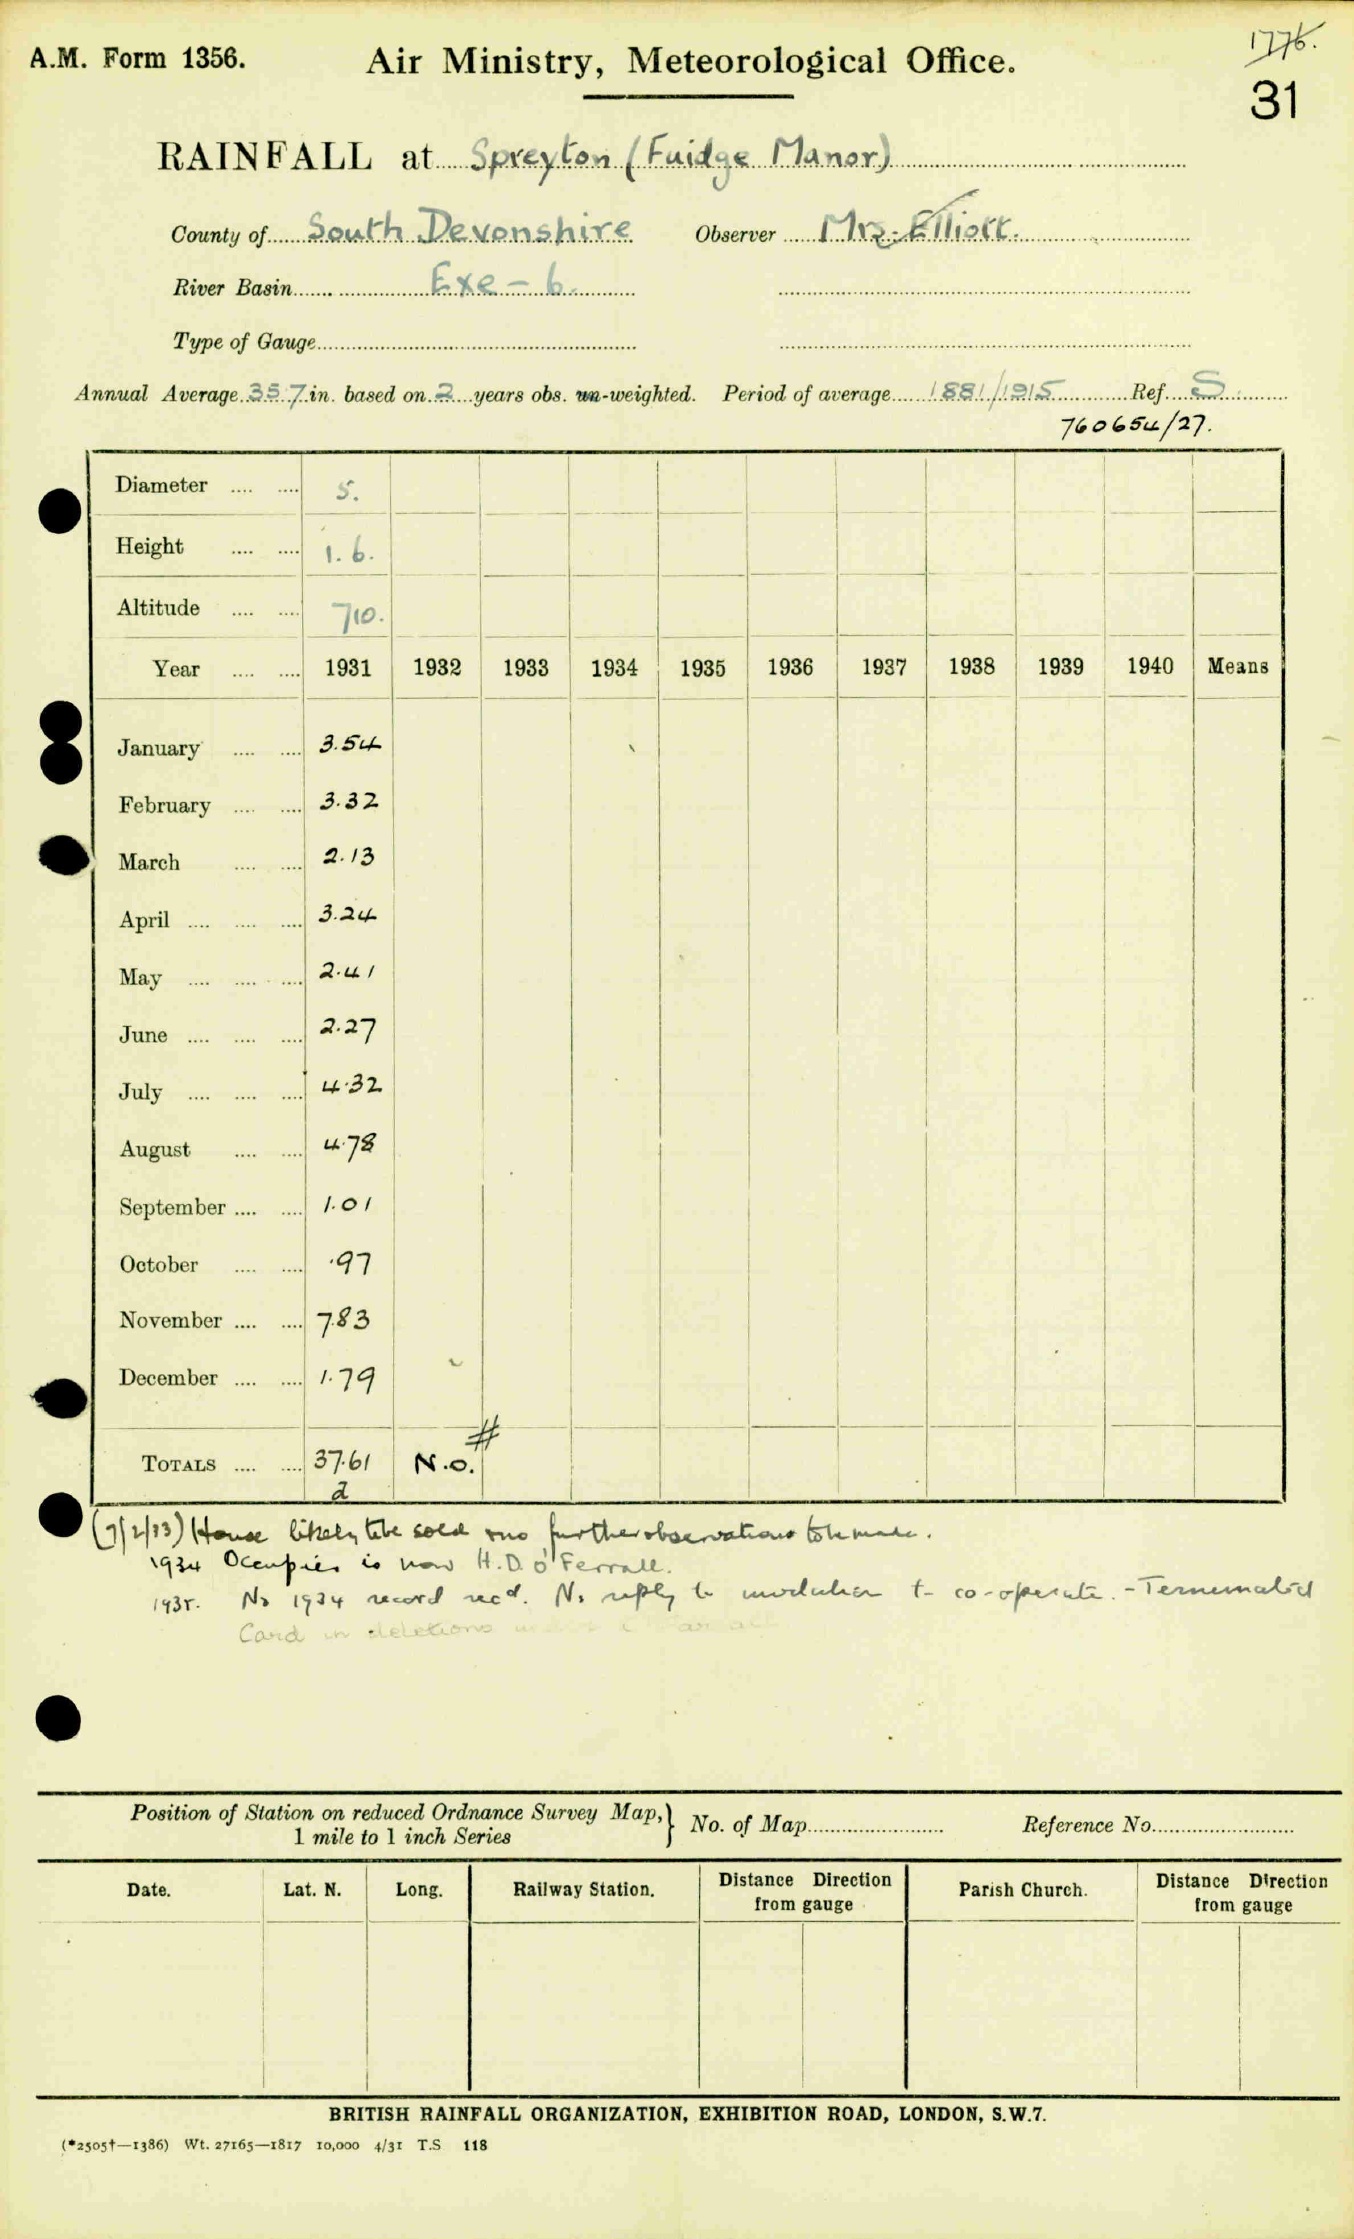 1776.
A.M. Form 1356. Air Ministry, Meteorological Office.
31
RAINFALL at Spreyton (Fuidge Manor)
County of South Devonshire Observer Mrs. Elliott.
River Basin Exe – 6.
Type of Gauge
Annual Average 35.7 in. based on 2 years obs. un-weighted. Period of average 1881/1915 Ref. S.
760654/27.
Diameter 5.
Height 1.6.
Altitude 710.
Year 1931 1932 1933 1934 1935 1936 1937 1938 1939 1940 Means
January 3.54
February 3.32
March 2.13
April 3.24
May 2.41
June 2.27
July 4.32
August 4.78
September 1.01
October .97
November 7.83
December 1.79
#
TOTALS 37.61 N.O.
2
(7/2/33) House likely to be sold & no further observations to be made.
1934 Occupier is now H.D. O'Ferrall.
1935. No 1934 record recd. No reply to invitation to co-operate. – Terminated
Card in deletions
Position of Station on reduced Ordnance Survey Map, } No. of Map Reference No.
1 mile to 1 inch Series
Date. Lat. N. Long. Railway Station. Distance Direction from gauge Parish Church. Distance Direction from gauge
BRITISH RAINFALL ORGANIZATION, EXHIBITION ROAD, LONDON, S.W.7.
(*2505†—1386) Wt. 27165—1817 10,000 4/31 T.S 118